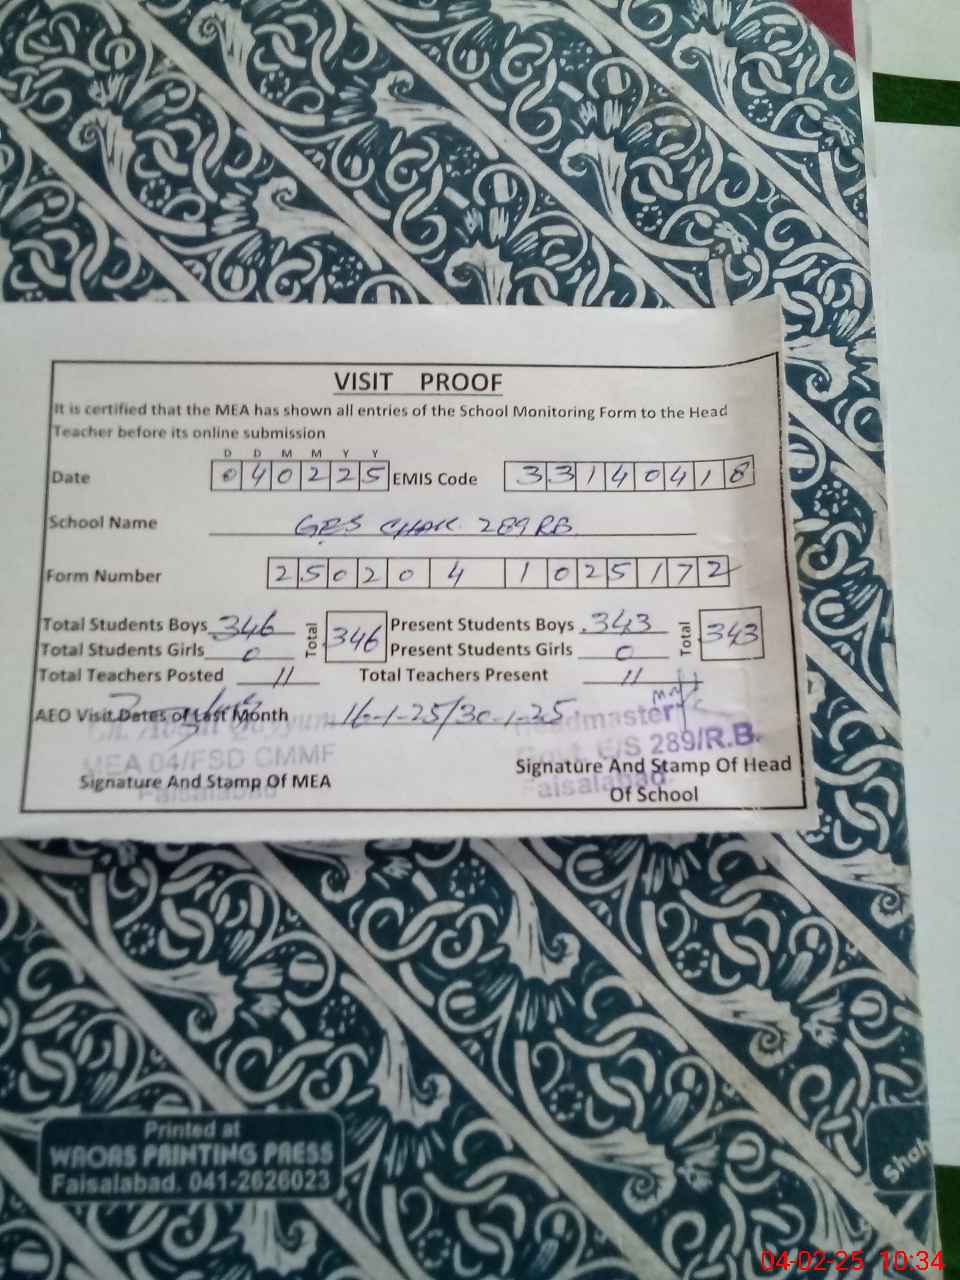 VISIT PROOF
It is certified that the MEA has shown all entries of the School Monitoring Form to the Head
Teacher before its online submission
D D M M Y Y
Date 040225 EMIS Code 33140418
School Name GES CHAK 289 RB
Form Number 2502041025172
Total Students Boys 346 Total 346 Present Students Boys 343 Total 343
Total Students Girls 0 Present Students Girls 0
Total Teachers Posted 11 Total Teachers Present 11
AEO Visit Dates of Last Month 16-1-25/30-1-25
Headmaster
MEA 04/FSD CMMF
Govt. E/S 289/R.B.
Faisalabad
Faisalabad.
Signature And Stamp Of MEA
Signature And Stamp Of Head
Of School
Printed at
WAQAS PRINTING PRESS
Faisalabad. 041-2626023
Shah
04-02-25 10:34